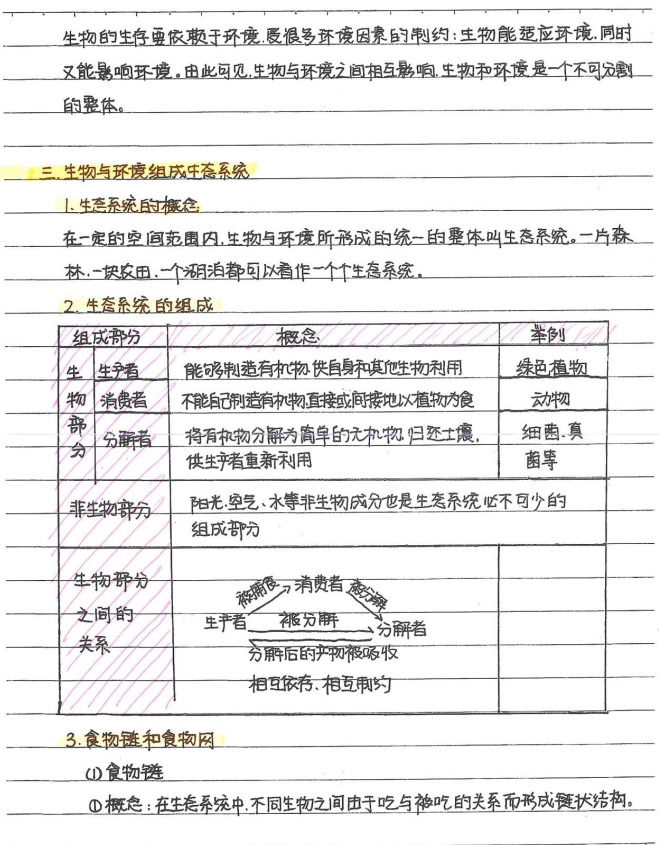 生物的生存要依赖于环境,受很多环境因素的制约;生物能适应环境,同时
又能影响环境。由此可见,生物与环境之间相互影响,生物和环境是一个不可分割
的整体。
三.生物与环境组成生态系统
1.生态系统的概念
在一定的空间范围内,生物与环境所形成的统一的整体叫生态系统。一片森
林、一块农田、一个湖泊都可以看作一个个生态系统。
2.生态系统的组成
组成部分 概念 举例
生物部分
生产者 能够制造有机物,供自身和其他生物利用 绿色植物
消费者 不能自己制造有机物,直接或间接地以植物为食 动物
分解者 将有机物分解为简单的无机物,归还土壤, 细菌、真
供生产者重新利用 菌等
非生物部分 阳光、空气、水等非生物成分也是生态系统必不可少的
组成部分
生物部分
之间的
关系
被捕食 消费者 被分解
生产者 被分解 分解者
分解后的产物被吸收
相互依存、相互制约
3.食物链和食物网
(1)食物链
①概念:在生态系统中,不同生物之间由于吃与被吃的关系而形成链状结构。